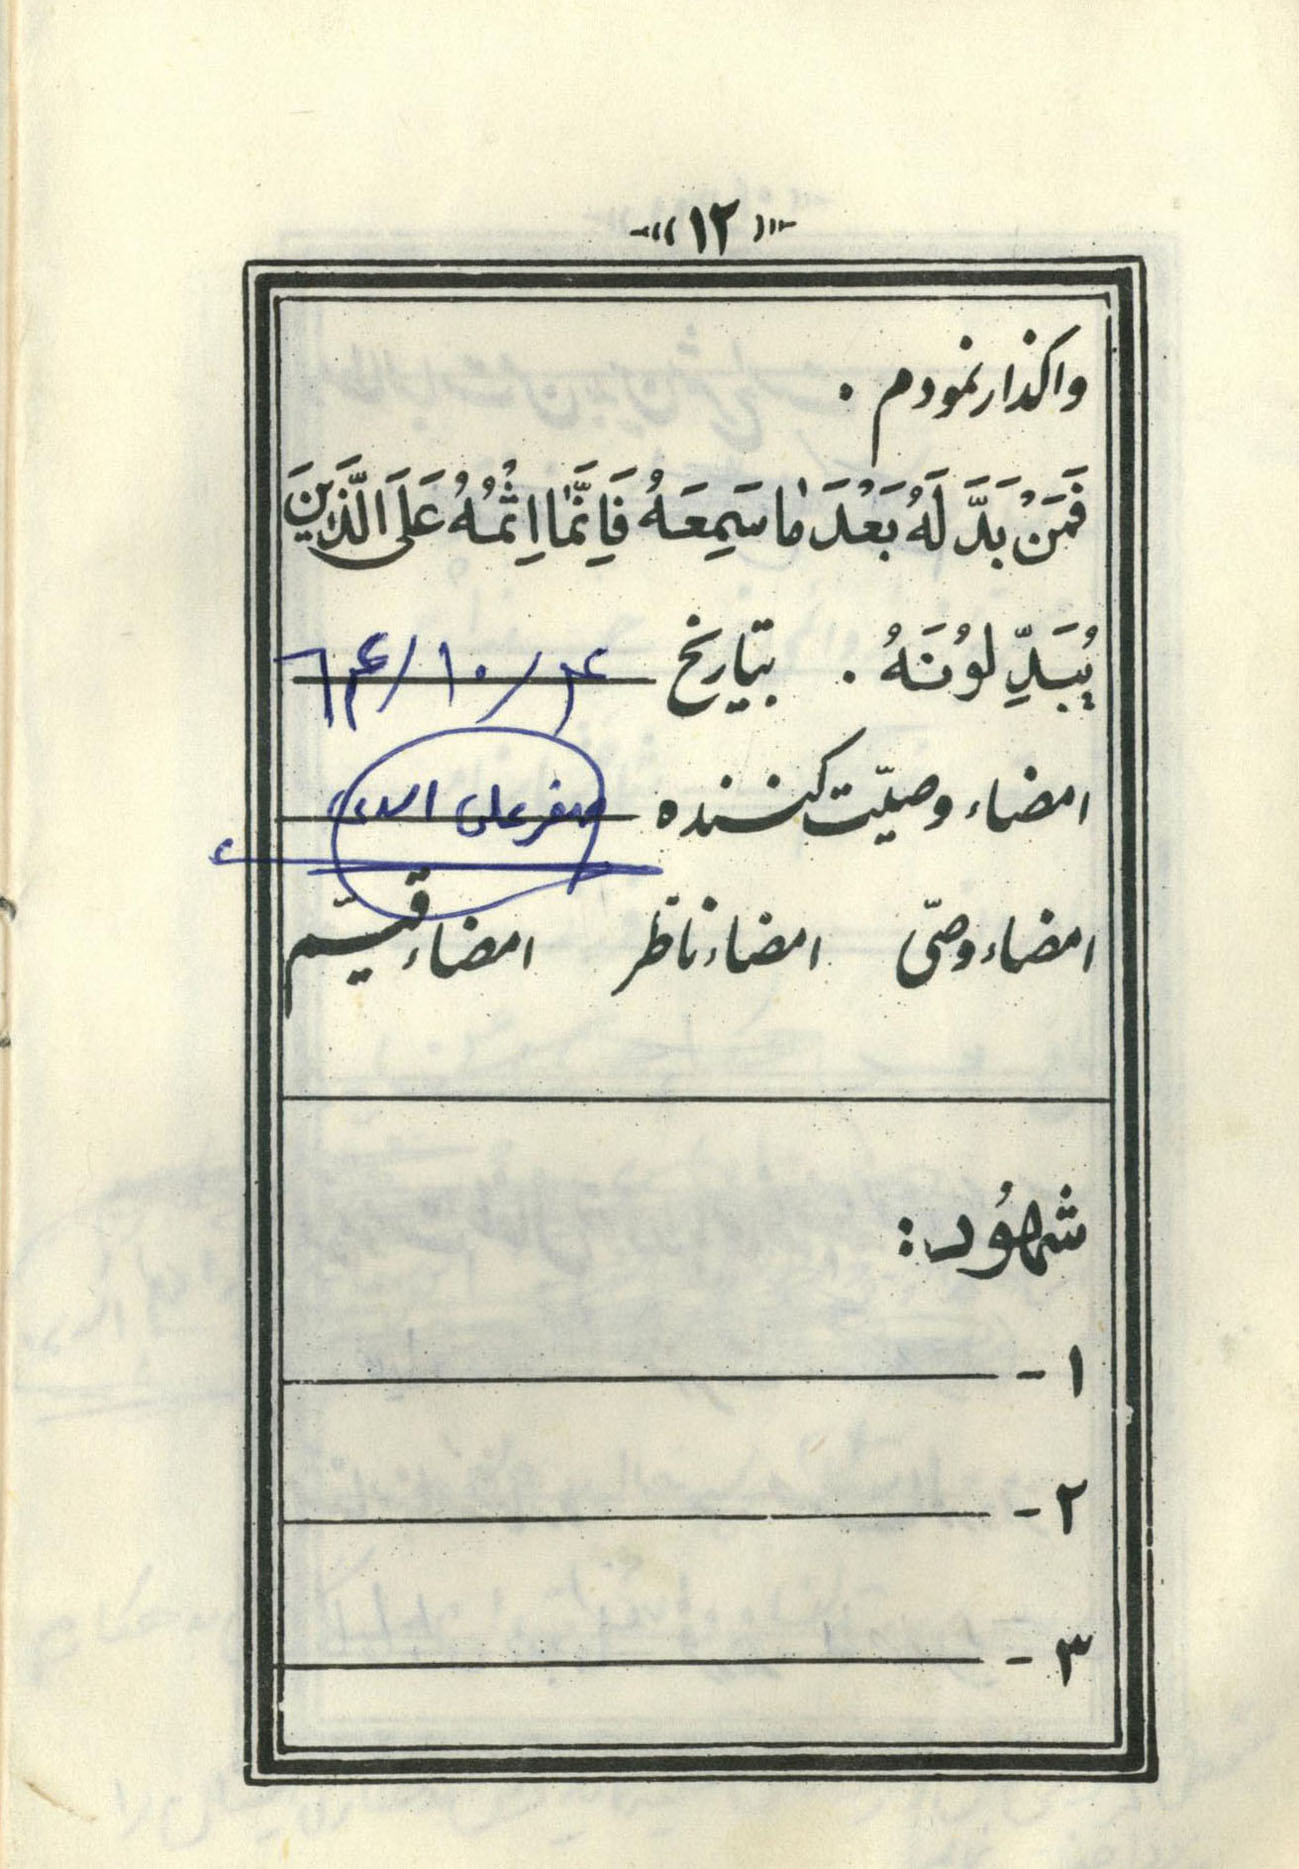 «۱۲»
واگذار نمودم .
فَمَنْ بَدَّلَهُ بَعْدَ مٰا سَمِعَهُ فَاِنَّمٰا اِثْمُهُ عَلَى الَّذِينَ
يُبَدِّلُونَهُ . بتاریخ ۶۴/۱۰/۴
امضاء وصیّت کننده صفرعلی
امضاء وصّی امضاء ناظر امضاء قیّم
شهُود :
۱ -
۲ -
۳ -